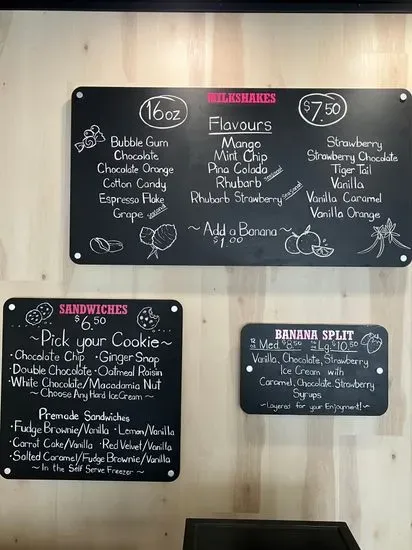 MILKSHAKES
16oz
$7.50
Flavours
Bubble Gum
Chocolate
Chocolate Orange
Cotton Candy
Espresso Flake
Grape Seasonal
Mango
Mint Chip
Pina Colada
Rhubarb Seasonal
Rhubarb Strawberry Seasonal
Strawberry
Strawberry Chocolate
Tiger Tail
Vanilla
Vanilla Caramel
Vanilla Orange
~Add a Banana~
$1.00
SANDWICHES
$6.50
~Pick your Cookie~
·Chocolate Chip ·Ginger Snap
·Double Chocolate ·Oatmeal Raisin
·White Chocolate/Macadamia Nut
~Choose Any Hard Ice Cream~
Premade Sandwiches
·Fudge Brownie/Vanilla ·Lemon/Vanilla
·Carrot Cake/Vanilla ·Red Velvet/Vanilla
·Salted Caramel/Fudge Brownie/Vanilla
~In the Self Serve Freezer~
BANANA SPLIT
12oz Med. $8.50 16oz Lg. $10.50
Vanilla, Chocolate, Strawberry
Ice Cream with
Caramel, Chocolate, Strawberry
Syrups
~Layered for your Enjoyment!~